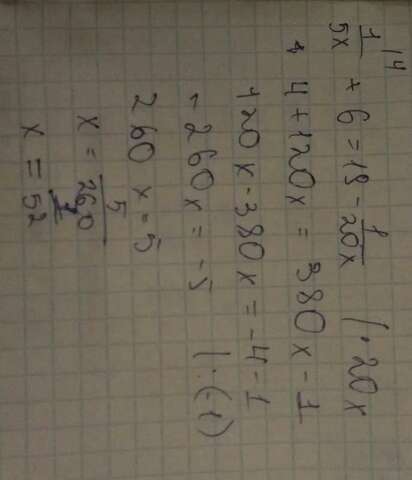 1/5x \4 + 6 = 19 - 1/20x | · 20x
4 + 120x = 380x - 1
120x - 380x = -4 - 1
- 260x = -5 | : (-1)
260x = 5
x = 260/5
x = 52